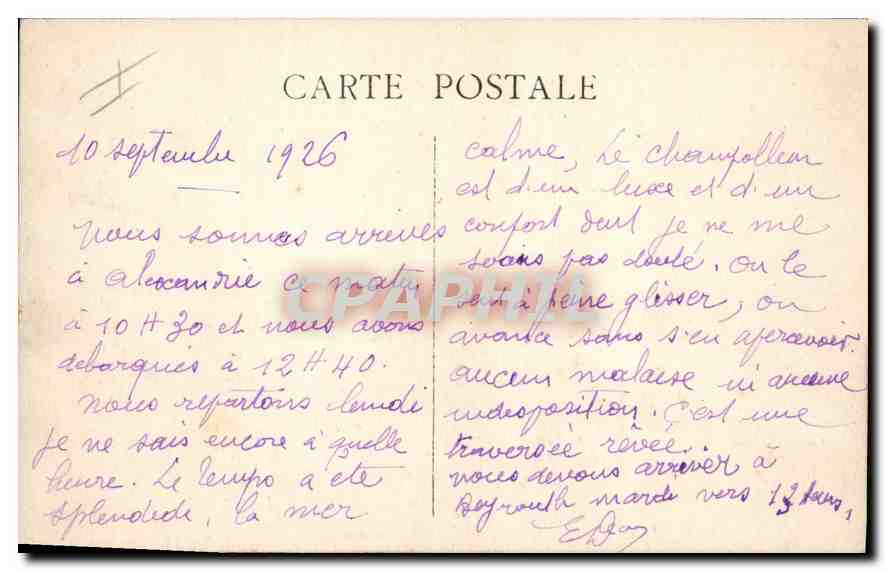 CARTE POSTALE
10 septembre 1926
Nous sommes arrivés
à Alexandrie ce matin
à 10 H 30 et nous avons
debarqués à 12 H 40.
Nous repartons lundi
je ne sais encore à quelle
heure. Le temps a été
splendide, la mer
calme, Le Champollion
est d'un luxe et d'un
confort dont je ne me
serais pas douté. On le
sent à peine glisser, on
avance sans s'en apercevoir.
aucun malaise ni aucune
indisposition. C'est une
traversée rêvée.
nous devons arriver à
Beyrouth mardi vers
CPAPHIL